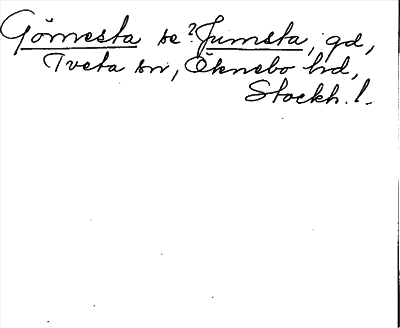 Gömesta se ? Jumsta, gd,
Tveta sn, Öknebo hd,
Stockh. l.